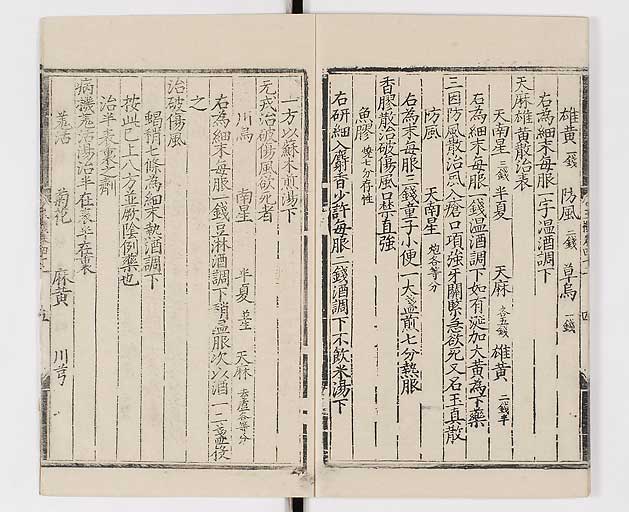 雄黃一錢 防風二錢 草烏一錢
右為細末每服一字温酒調下
天麻雄黃散治表
天南星三錢 半夏 天麻各五錢 雄黃二錢半
右為細末每服一錢温酒調下如有涎加大黃為下藥
三因防風散治風入瘡口項強牙關緊急欲死又名玉真散
防風 天南星炮各等分
右為末每服三錢童子小便一大盞煎七分熱服
香膠散治破傷風口禁直強
魚膠燒七分存性
右研細入麝香少許每服二錢酒調下不飲米湯下
一方以蘇木煎湯下
元戎治破傷風欲死者
川烏 南星 半夏並生 天麻去蘆各等分
右為細末每服一錢豆淋酒調下稍温服次以酒一二盞投
之
治破傷風
蝎稍七條為細末熱酒調下
按此已上八方並厥陰例藥也
治半表裏之劑
病機羗活湯治半在表半在裏
羗活 菊花 麻黃 川芎